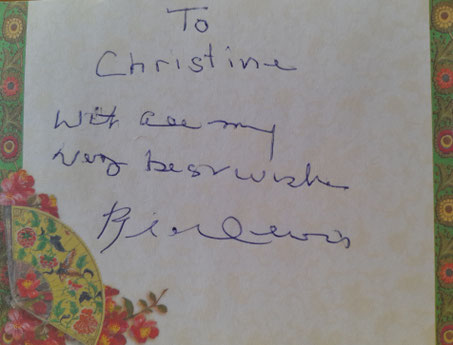 To
Christine
With all my
very best wishes